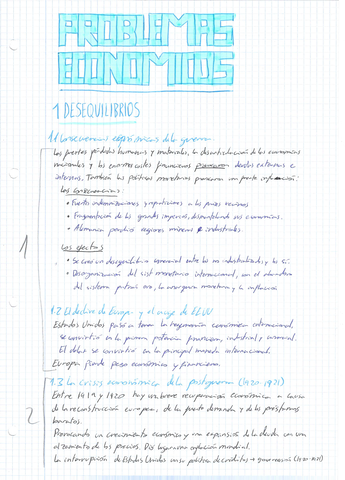 PROBLEMAS
ECONOMICOS
1 DESEQUILIBRIOS
1.1 Consecuencias económicas de la guerra.
Las fuertes pérdidas humanas y materiales, la desarticulación de las economías
nacionales y los enormes costes financieros provocaron deudas externas e
internas. También las políticas monetarias provocaron una fuerte inflación:
Las consecuencias:
• Fuertes indemnizaciones y reparaciones a los países vecinos
• Fragmentación de los grandes imperios, desmantelando sus economías.
• Alemania perdió regiones mineras e industriales.
Los efectos
• Se creó un desequilibrio comercial entre los no industrializados y los sí.
• Desorganización del sist monetario internacional, con el abandono
del sistema patrón oro, la emergencia monetaria y la inflación
1
1.2 El declive de Europa y el auge de EEUU
Estados Unidos pasó a tener la hegemonía económica internacional,
se convirtió en la primera potencia financiera, industrial y comercial.
El dólar se convirtió en la principal moneda internacional.
Europa pierde peso económico y financiero.
1.3 La crisis económica de la postguerra (1920-1921)
Entre 1919 y 1920 hay una breve recuperación económica a causa
de la reconstrucción europea, de la fuerte demanda y de los préstamos
baratos.
2
Provocando un crecimiento económico y una expansión de la deuda con un
alzamiento de los precios. Dió lugar a una inflación mundial.
La interrupción de Estados Unidos en su política de créditos a (1920-1921)